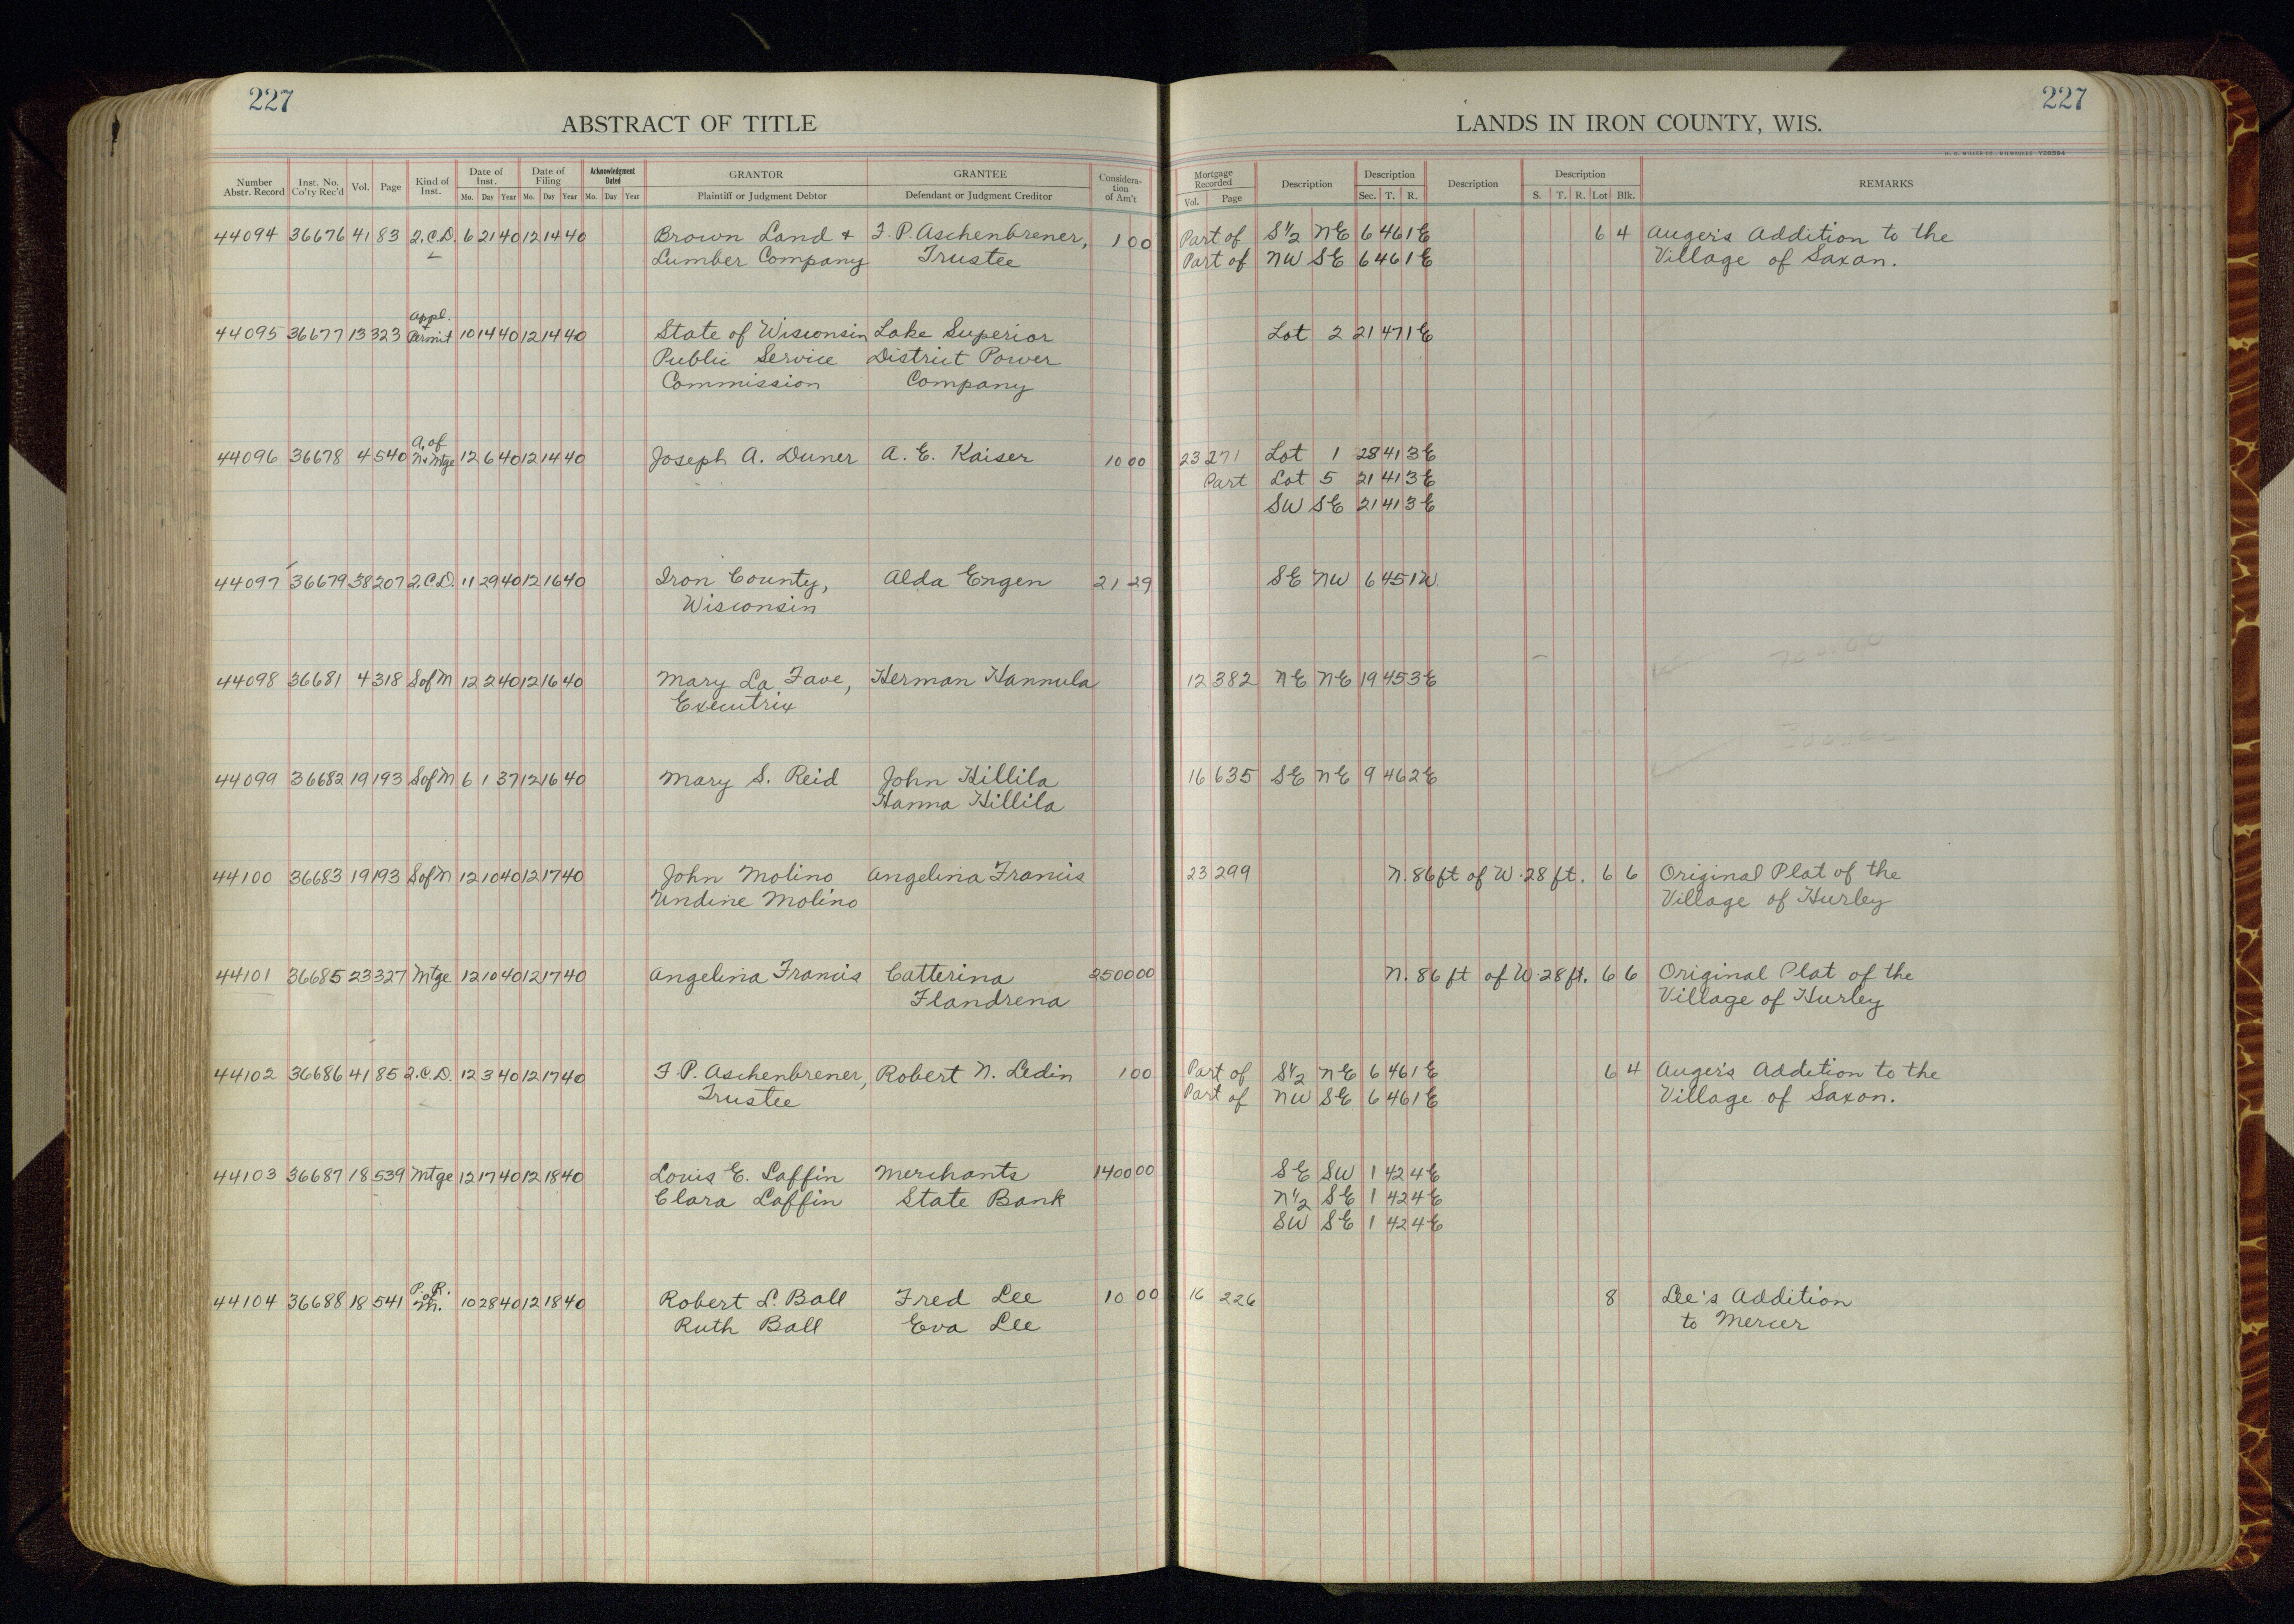 227
227
ABSTRACT OF TITLE
LANDS IN IRON COUNTY, WIS.
H. C. MILLER CO., MILWAUKEE
Number Abstr. Record | Inst. No. Co'ty Rec'd | Vol. | Page | Kind of Inst. | Date of Inst. Mo. Day Year | Date of Filing Mo. Day Year | Acknowledgment Dated Mo. Day Year | GRANTOR Plaintiff or Judgment Debtor | GRANTEE Defendant or Judgment Creditor | Considera-tion of Am't | Mortgage Recorded Vol. Page | Description | Description Sec. T. R. | Description | Description S. T. R. Lot Blk. | REMARKS
44094 36676 41 83 2.C.D. 6 21 40 12 14 40 Brown Land + F. P. Aschenbrener, 1 00 Part of S½ NE 6 46 1E 6 4 Auger's Addition to the
Lumber Company Trustee Part of NW SE 6 46 1E Village of Saxon.
Appl.
+
44095 36677 13 323 Permit 10 14 40 12 14 40 State of Wisconsin Lake Superior Lot 2 21 47 1E
Public Service District Power
Commission Company
A. of
44096 36678 4 540 N+Mtge 12 6 40 12 14 40 Joseph A. Duner A. E. Kaiser 10 00 23 271 Lot 1 28 41 3E
Part Lot 5 21 41 3E
SW SE 21 41 3E
44097 36679 38 207 2.C.D. 11 29 40 12 16 40 Iron County, Alda Engen 21 29 SE NW 6 45 1W
Wisconsin
44098 36681 4 318 S of M 12 2 40 12 16 40 Mary La Fave, Herman Hannula 12 382 NE NE 19 45 3E
Executrix
44099 36682 19 193 S of M 6 1 37 12 16 40 Mary S. Reid John Hillila 16 635 SE NE 9 46 2E
Hanna Hillila
44100 36683 19 193 S of M 12 10 40 12 17 40 John Molino Angelina Francis 23 299 N. 86 ft of W. 28 ft. 6 6 Original Plat of the
Undine Molino Village of Hurley
44101 36685 23 327 Mtge 12 10 40 12 17 40 Angelina Francis Catterina 2500 00 N. 86 ft of W. 28 ft. 6 6 Original Plat of the
Flandrena Village of Hurley
44102 36686 41 85 2.C.D. 12 3 40 12 17 40 F. P. Aschenbrener, Robert N. Ledin 1 00 Part of S½ NE 6 46 1E 6 4 Auger's Addition to the
Trustee Part of NW SE 6 46 1E Village of Saxon.
44103 36687 18 539 Mtge 12 17 40 12 18 40 Louis E. Laffin Merchants 1400 00 SE SW 1 42 4E
Clara Laffin State Bank N½ SE 1 42 4E
SW SE 1 42 4E
P. R.
of
44104 36688 18 541 M. 10 28 40 12 18 40 Robert L. Ball Fred Lee 10 00 16 226 8 Lee's Addition
Ruth Ball Eva Lee to Mercer